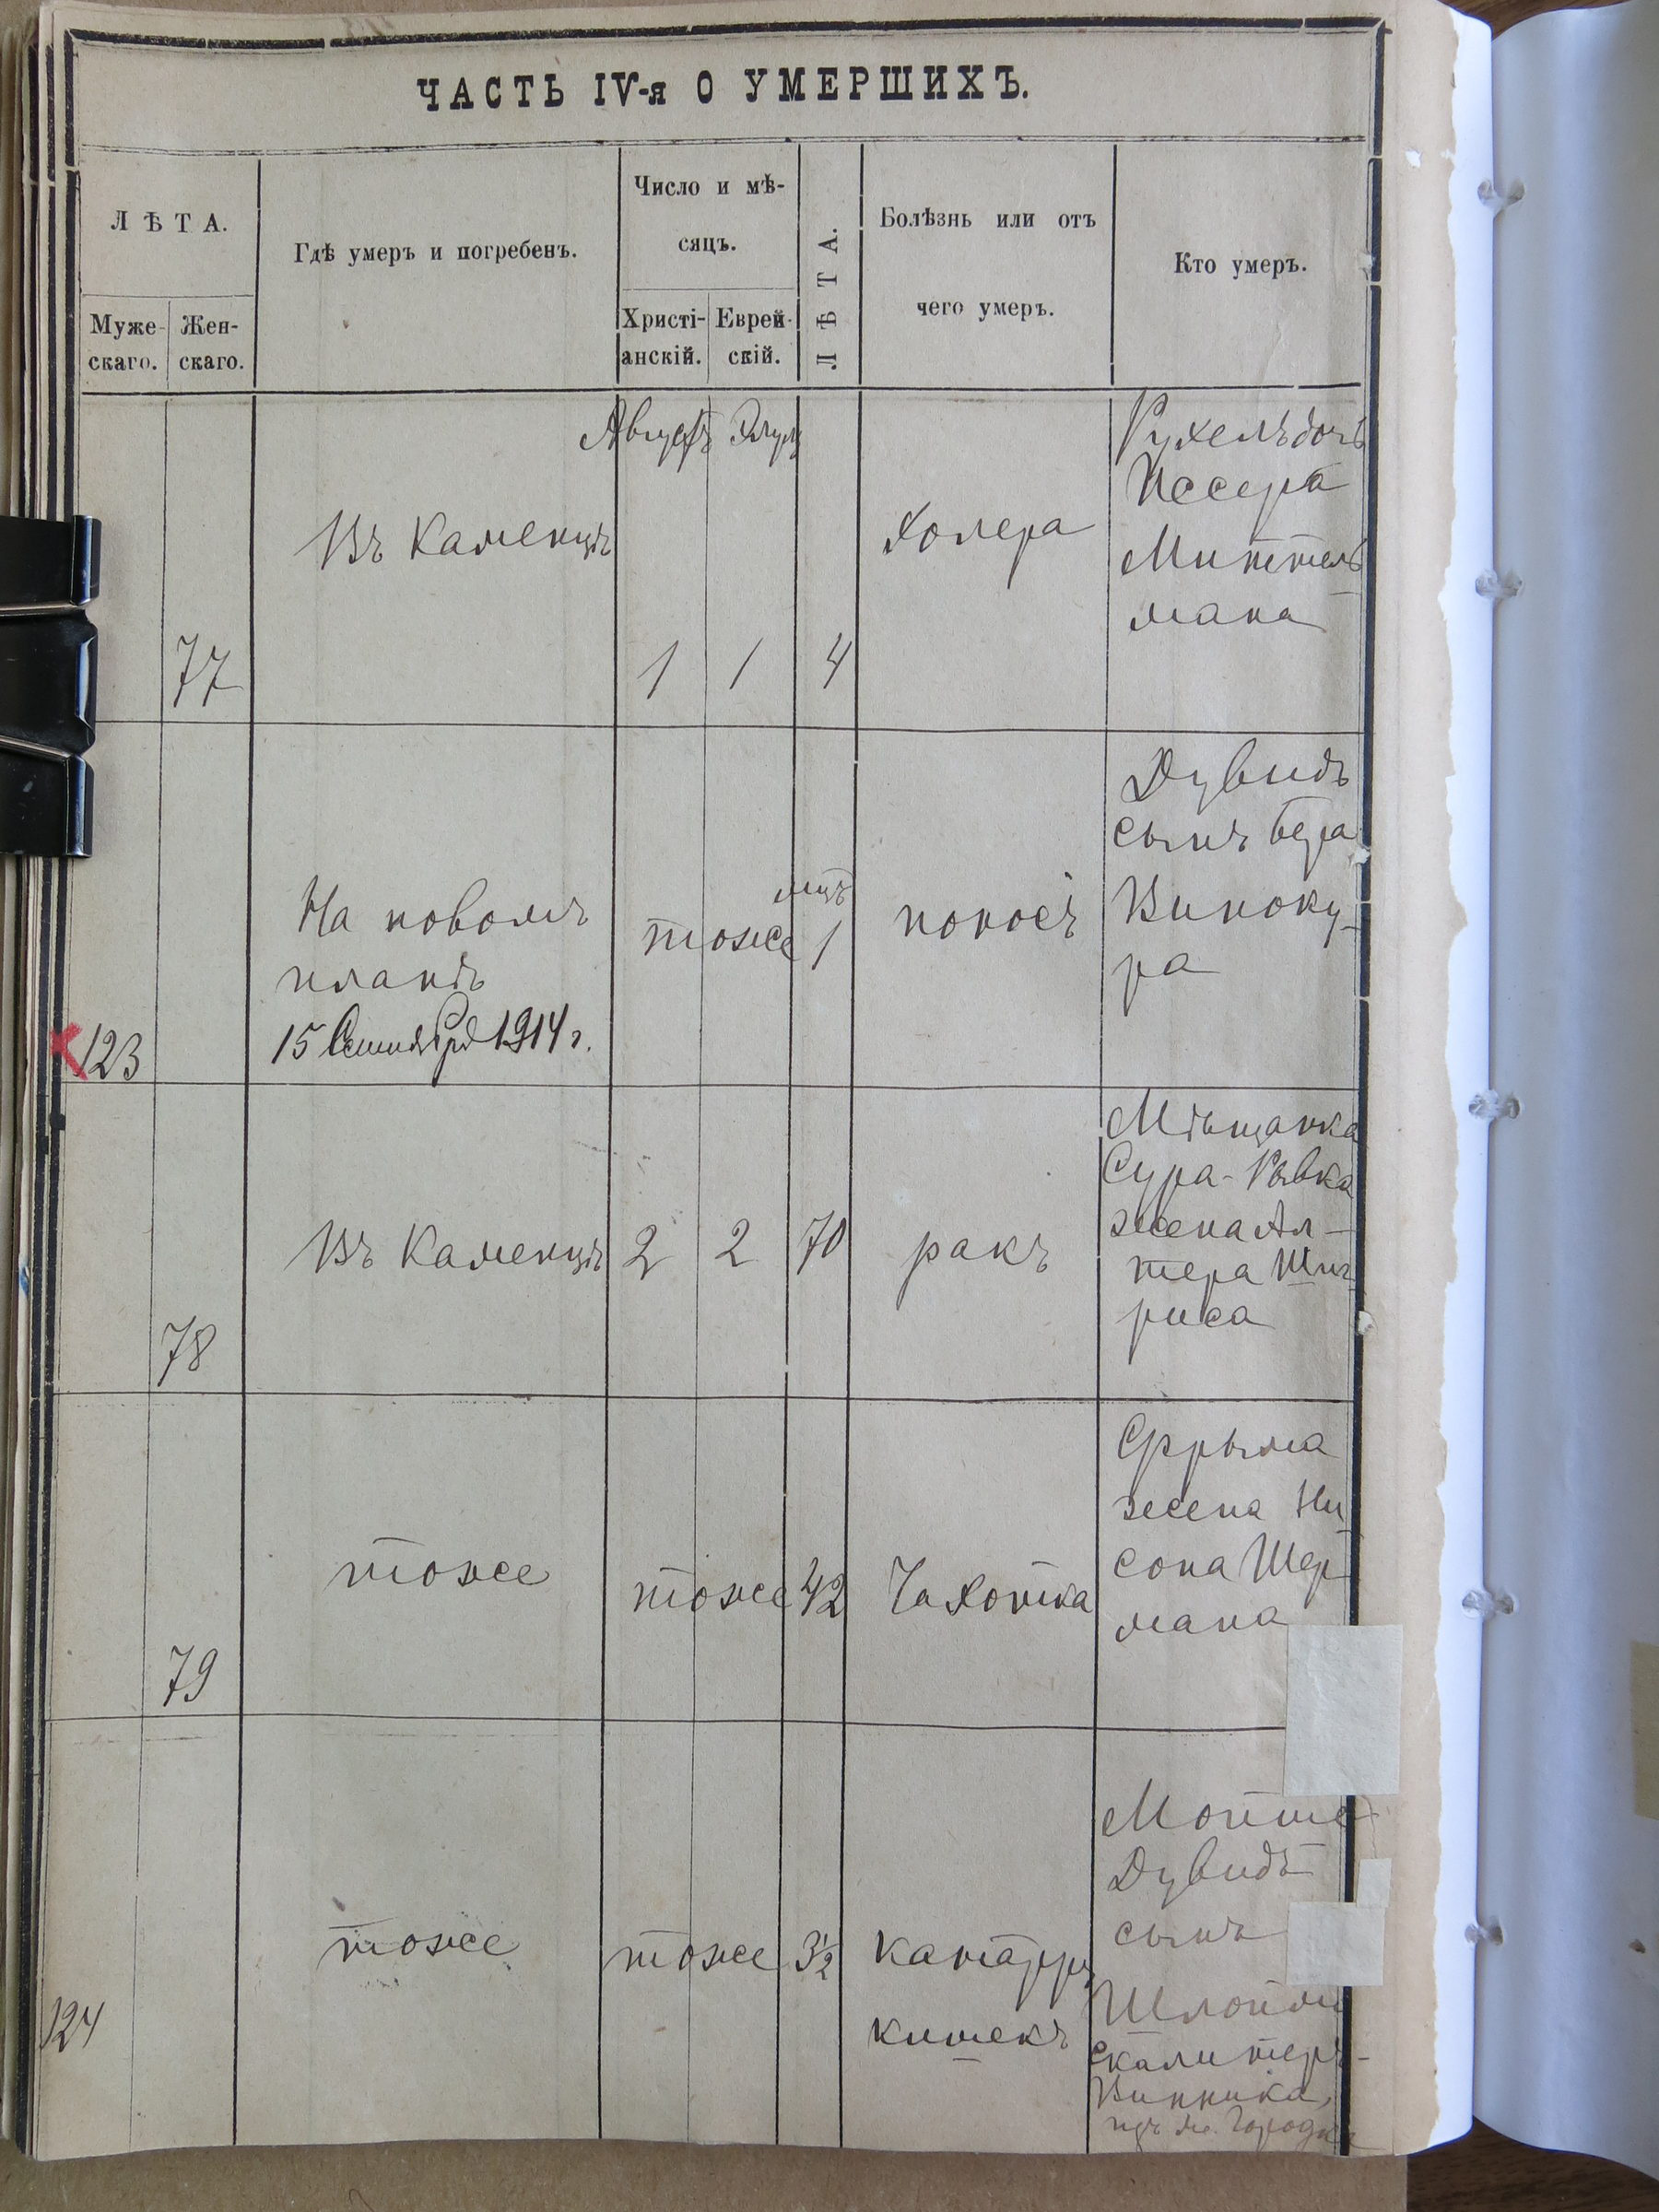 ЧАСТЬ IV-я О УМЕРШИХЪ.
ЛѢТА.
Муже-
скаго.
Жен-
скаго.
Гдѣ умеръ и погребенъ.
Число и мѣ-
сяцъ.
Христі-
анскій.
Еврей-
скій.
ЛѢТА.
Болѣзнь или отъ
чего умеръ.
Кто умеръ.
Августъ Элулъ
77
Въ Каменцѣ
1
1
4
Холера
Рухель дочь
Иссера
Миттель
мана
123
На новомъ
планѣ
15 Сентября 1914 г.
тоже
мцъ
1
поносъ
Дувидъ
сынъ Бера
Виноку-
ра
78
Въ Каменцѣ
2
2
70
ракъ
Мѣщанка
Сура-Ривка
жена Ал-
тера
риса
79
тоже
тоже
42
Чахотка
Фрыма
жена Ни
сона Шер-
мана
124
тоже
тоже
3½
катарръ
кишекъ
Мойше-
Дувидъ
сынъ
Шлоймы
Винника,
изъ м. Городка